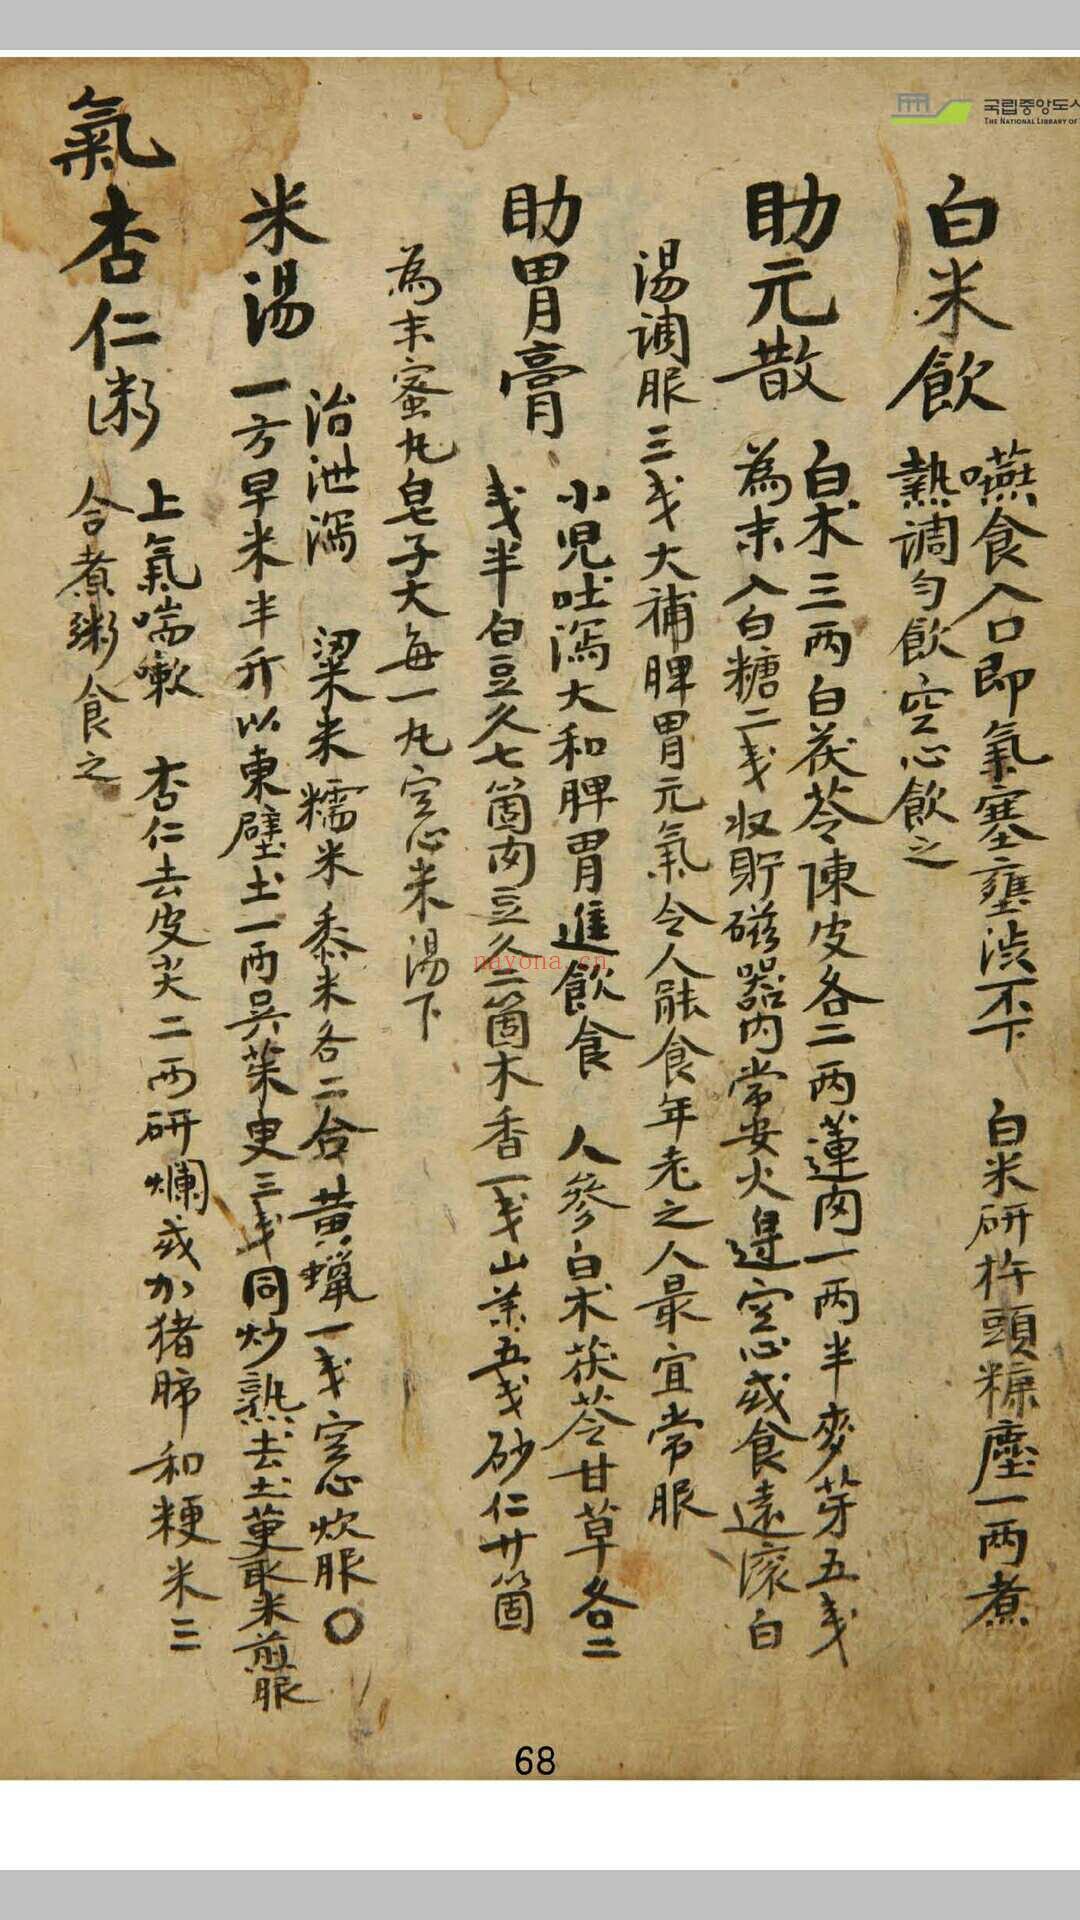 국립중앙도서
THE NATIONAL LIBRARY OF
白米飲
嚥食入口即氣塞壅澁不下 白米研杵頭糠塵一兩煮
熱調勻飮空心飮之
助元散
白朮三兩白茯苓陳皮各二兩蓮肉一兩半麥芽五戔
為末入白糖二戔收貯磁器內常安火邊空心或食遠滾白
湯調服三戔大補脾胃元氣令人能食年老之人最宜常服
助胃膏
小児吐瀉大和脾胃進飮食 人參白朮茯苓甘草各二
戔半白豆久七箇肉豆久二箇木香一戔山藥五戔砂仁廿箇
為末蜜丸皂子大每一丸空心米湯下
米湯
治泄瀉 粱米糯米黍米各二合黃蠟一戔空心炊服〇
一方早米半升以東壁土一兩吳茱萸三戔同炒熟去土萸取米煎服
氣杏仁粥
上氣喘嗽 杏仁去皮尖二兩研爛或加猪肺和粳米三
合煮粥食之
nayona.cn
68